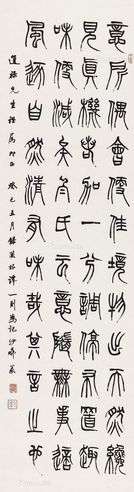 意所偶會便佳境物出天然纔
見真機若加一分調停布置趣
味便減矣白氏云意隨無事適
風逐自然清有味哉其言之也
先生 屬即正 癸巳五月錄菜根譚一則